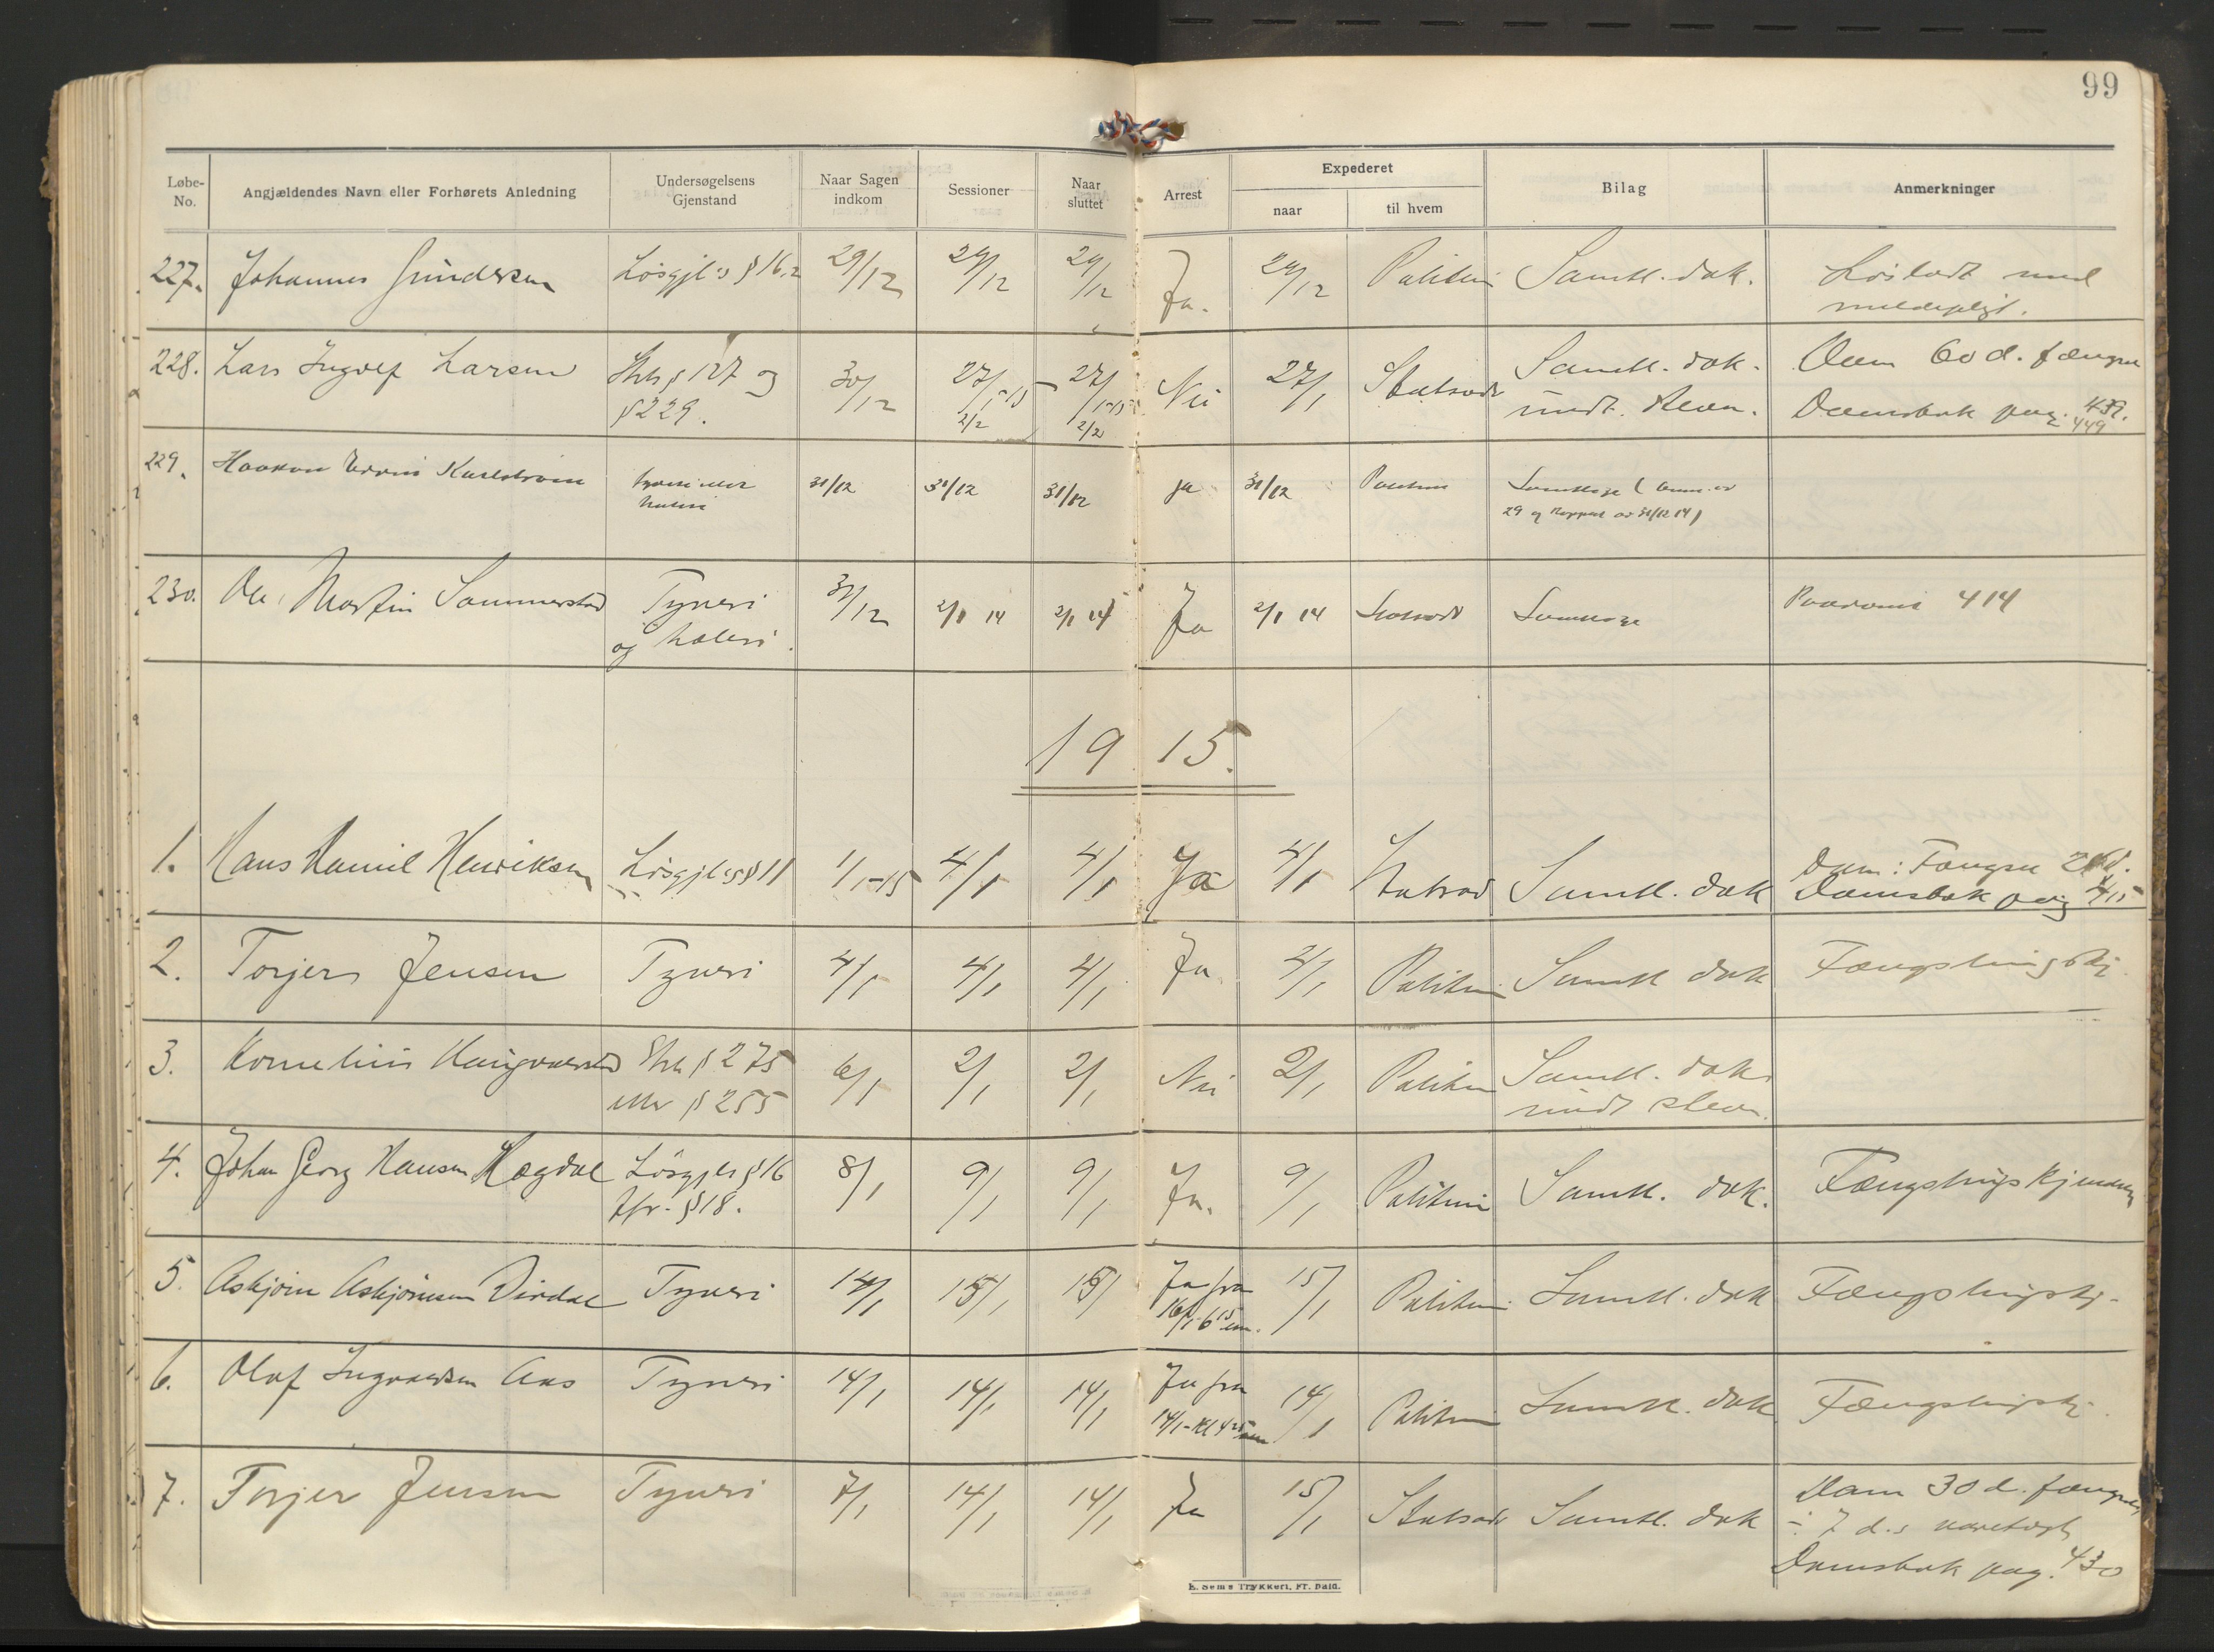 99
Løbe-No. Angjældendes Navn eller Forhørets Anledning Undersøgelsens Gjenstand Naar Sagen indkom Sessioner Naar sluttet Arrest Expederet naar til hvem Bilag Anmerkninger
227. Johannes Gundersen Løsgjl's § 16,2 29/12 29/12 29/12 Ja. 29/12 Politiet Samtl. dok. Løsladt med
meldepligt.
228. Lars Ingolf Larsen Strl. § 127 og 30/12 27/1-15 27/1-15 Nei 27/1 Statsadv Samtl. dok. Dom 60 d. fængsel
§ 229. 2/2 2/2 undt. stevn. Domsbok pag. 439.
449
229. Haakon Karlstrøm tyveri eller 31/12 31/12 31/12 ja 31/12 Politiet Samtlige
hæleri 29 og Rapport av 31/12 14)
230. Ole Martin Sommerstad Tyveri 31/12 2/1 14 2/1 14 Ja 2/1 14 Statsadv Samtlige Paadømt 414
og hæleri.
1915.
1. Hans Daniel Henriksen Løsgjl's § 11 1/1-15 4/1 4/1 Ja 4/1 Statsad Samtl. dok Dom: Fængsel
Domsbok pag 415
2. Torjer Jensen Tyveri 4/1 4/1 4/1 Ja 4/1 Politiet Samtl dok Fængslingskj.
3. Kornelius Strl. § 275 6/1 2/1 2/1 Nei 2/1 Politiet Samtl. dok
eller § 255 undt stevn.
4. Johan Georg Hansen Hagdal Løsgjl's § 16 8/1 9/1 9/1 Ja. 9/1 Politiet Samtl. dok. Fængslingskjendelse
jfr. § 18.
5. Asbjørn Asbjørnsen Dirdal Tyveri 14/1 15/1 15/1 Ja fra 15/1 Politiet Samtl. dok Fængslingskj.
16/1 6 15 em.
6. Olaf Ingvaldsen Aas Tyveri 14/1 14/1 14/1 Ja fra 14/1 Politiet Samtl. dok Fængslingskj.
14/1 - kl 4 25 em
7. Torjer Jensen Tyveri 7/1 14/1 14/1 Ja 15/1 Statsadv Samtl. dok Dom 30 d. fængsel,
÷ 7 d.s varetægt
Domsbok pag. 430
E. Sems Trykkeri, Fr. Hald.